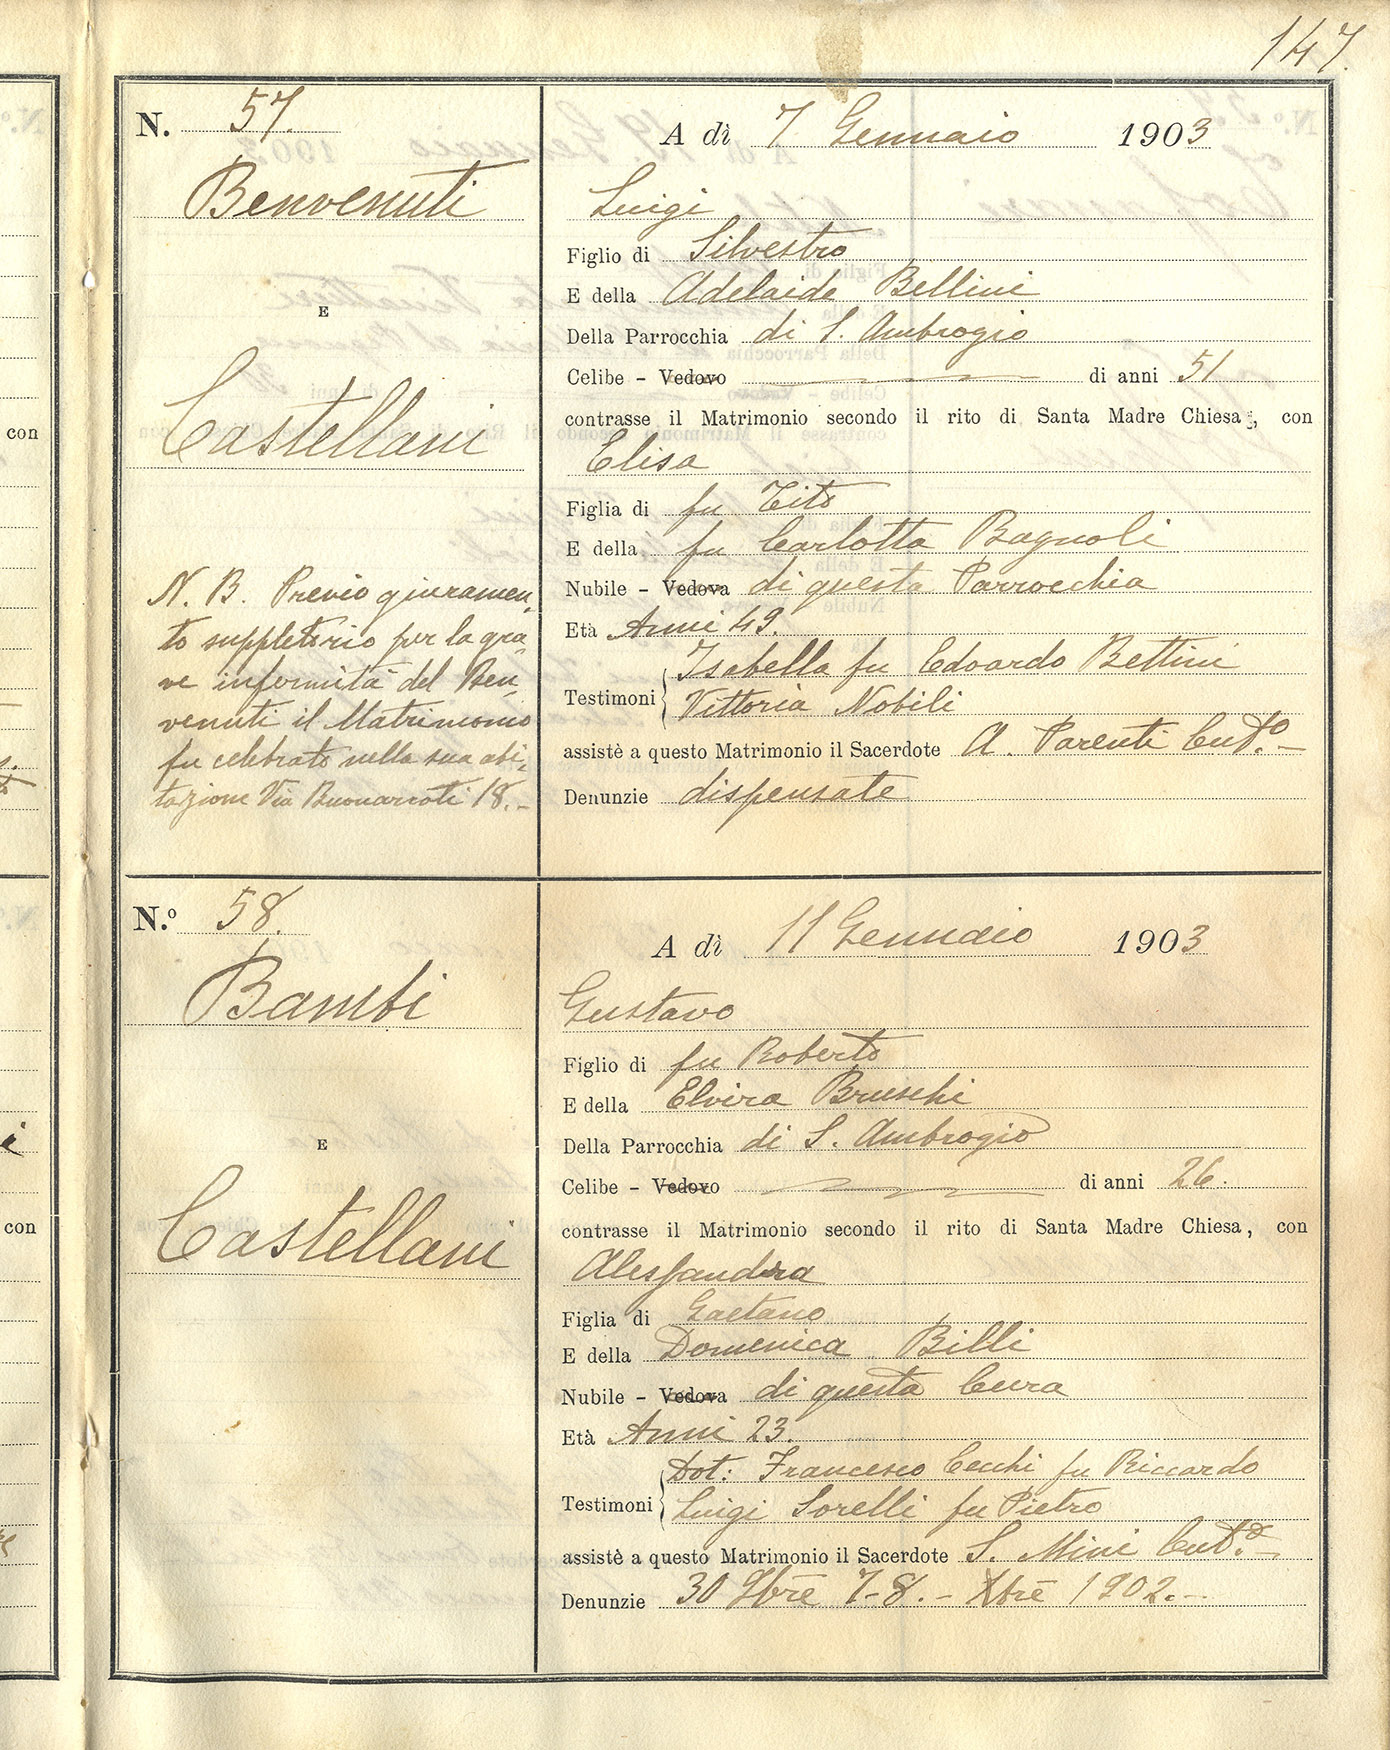 147.
N. 57.
Benvenuti
E
Castellani
N. B. Previo giuramen-
to suppletorio per la gra-
ve infermità del Ben-
venuti il Matrimonio
fu celebrato nella sua abi-
tazione Via Buonarroti 18.-
A dì 7 Gennaio 1903
Luigi
Figlio di Silvestro
E della Adelaide Bellini
Della Parrocchia di S. Ambrogio
Celibe - Vedovo di anni 51
contrasse il Matrimonio secondo il rito di Santa Madre Chiesa, con
Elisa
Figlia di fu Tito
E della fu Carlotta Bagnoli
Nubile - Vedova di questa Parrocchia
Età Anni 49.
Isabella fu Edoardo Bettini
Testimoni
Vittoria Nobili
assistè a questo Matrimonio il Sacerdote A. Parenti Cut.º -
Denunzie dispensate
N.º 58.
Bambi
E
Castellani
A dì 11 Gennaio 1903
Gustavo
Figlio di fu Roberto
E della Elvira Bruschi
Della Parrocchia di S. Ambrogio
Celibe - Vedovo di anni 26.
contrasse il Matrimonio secondo il rito di Santa Madre Chiesa, con
Alessandra
Figlia di Gaetano
E della Domenica Billi
Nubile - Vedova di questa Cura
Età Anni 23.
Dot: Francesco Cecchi fu Riccardo
Testimoni
Luigi Sorelli fu Pietro
assistè a questo Matrimonio il Sacerdote S. Mini Cut.º -
Denunzie 30 9bre 7-8. - Xbre 1902.-
con
con